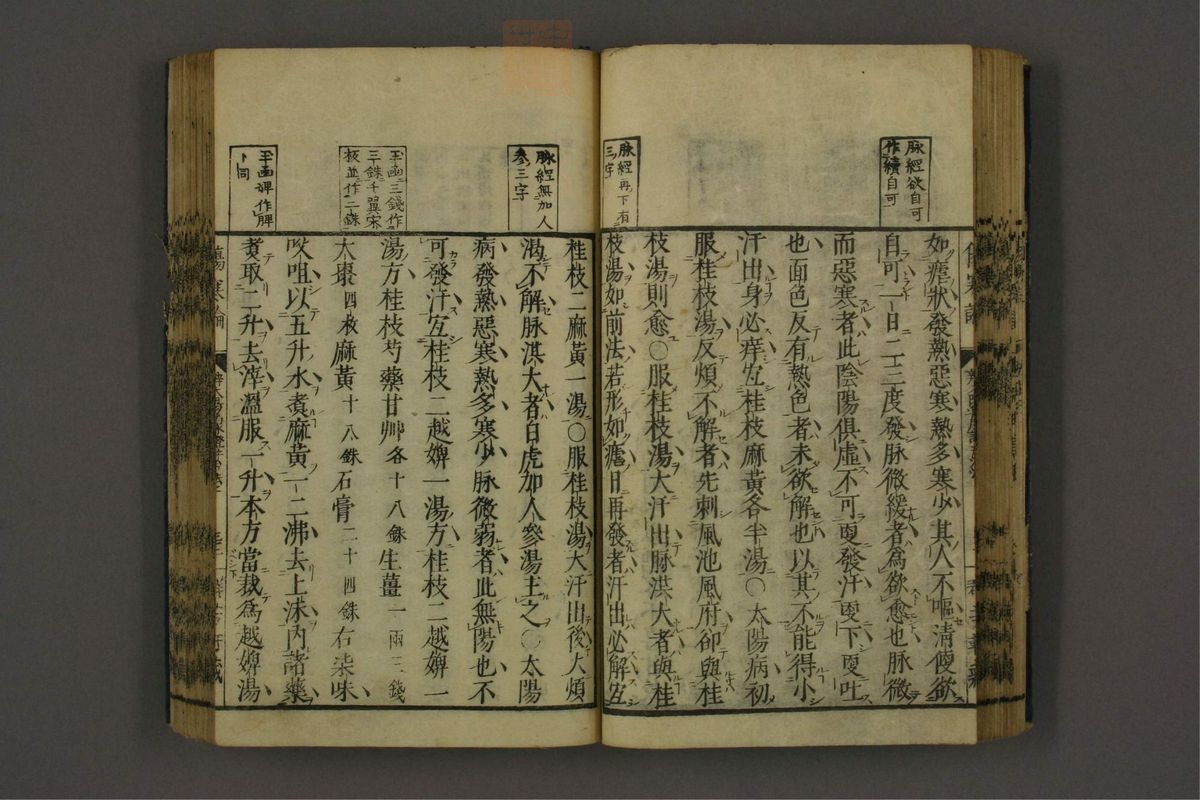 脉經欲自可
作續自可
脉經再下有
三字
如瘧狀發熱惡寒熱多寒少其人不嘔清便欲
自可一日二三度發脉微緩者為欲愈也脉微
而惡寒者此陰陽俱虛不可更發汗更下更吐
也面色反有熱色者未欲解也以其不能得小
汗出身必痒宜桂枝麻黃各半湯○太陽病初
服桂枝湯反煩不解者先刺風池風府卻與桂
枝湯則愈○服桂枝湯大汗出脉洪大者與桂
枝湯如前法若形如瘧日再發者汗出必解宜
脉經無加人
參三字
玉函三錢作
三銖千翼宋
板並作二銖
玉函婢作脾
下同
桂枝二麻黃一湯○服桂枝湯大汗出後大煩
渴不解脉洪大者白虎加人參湯主之○太陽
病發熱惡寒熱多寒少脉微弱者此無陽也不
可發汗宜桂枝二越婢一湯方桂枝二越婢一
湯方桂枝芍藥甘艸各十八銖生薑一兩三錢
大棗四枚麻黃十八銖石膏二十四銖右柒味
㕮咀以五升水煮麻黃一二沸去上沫內諸藥
煮取二升去滓溫服一升本方當裁為越婢湯
傷寒論